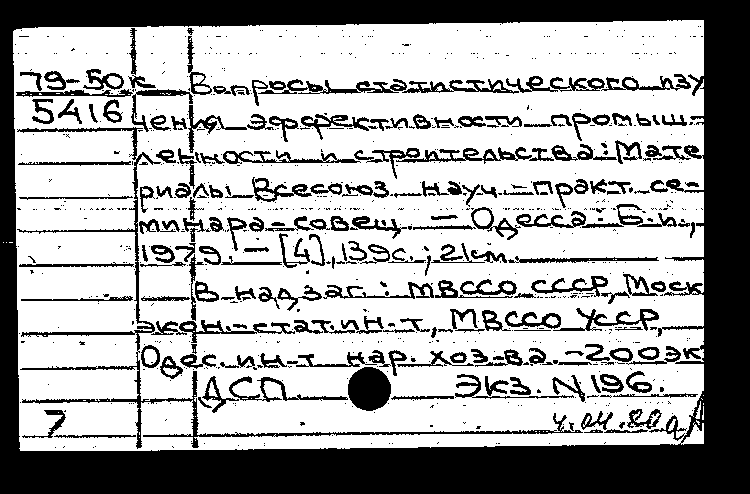 79-50к Вопросы статистического изу
5416 чения эффективности промыш-
ленности и строительства: [Мате
риалы Всесоюз. науч.-практ. се-
минара-совещ. — Одесса: Б.и.,
1979. — [4], 139с.; 21см.
В надзаг.: МВССО СССР, Моск
экон.-стат. ин-т, МВССО УССР,
Одес. ин-т нар. хоз-ва. -200эк
ДСП. Экз. N 196.
7 4.04.80